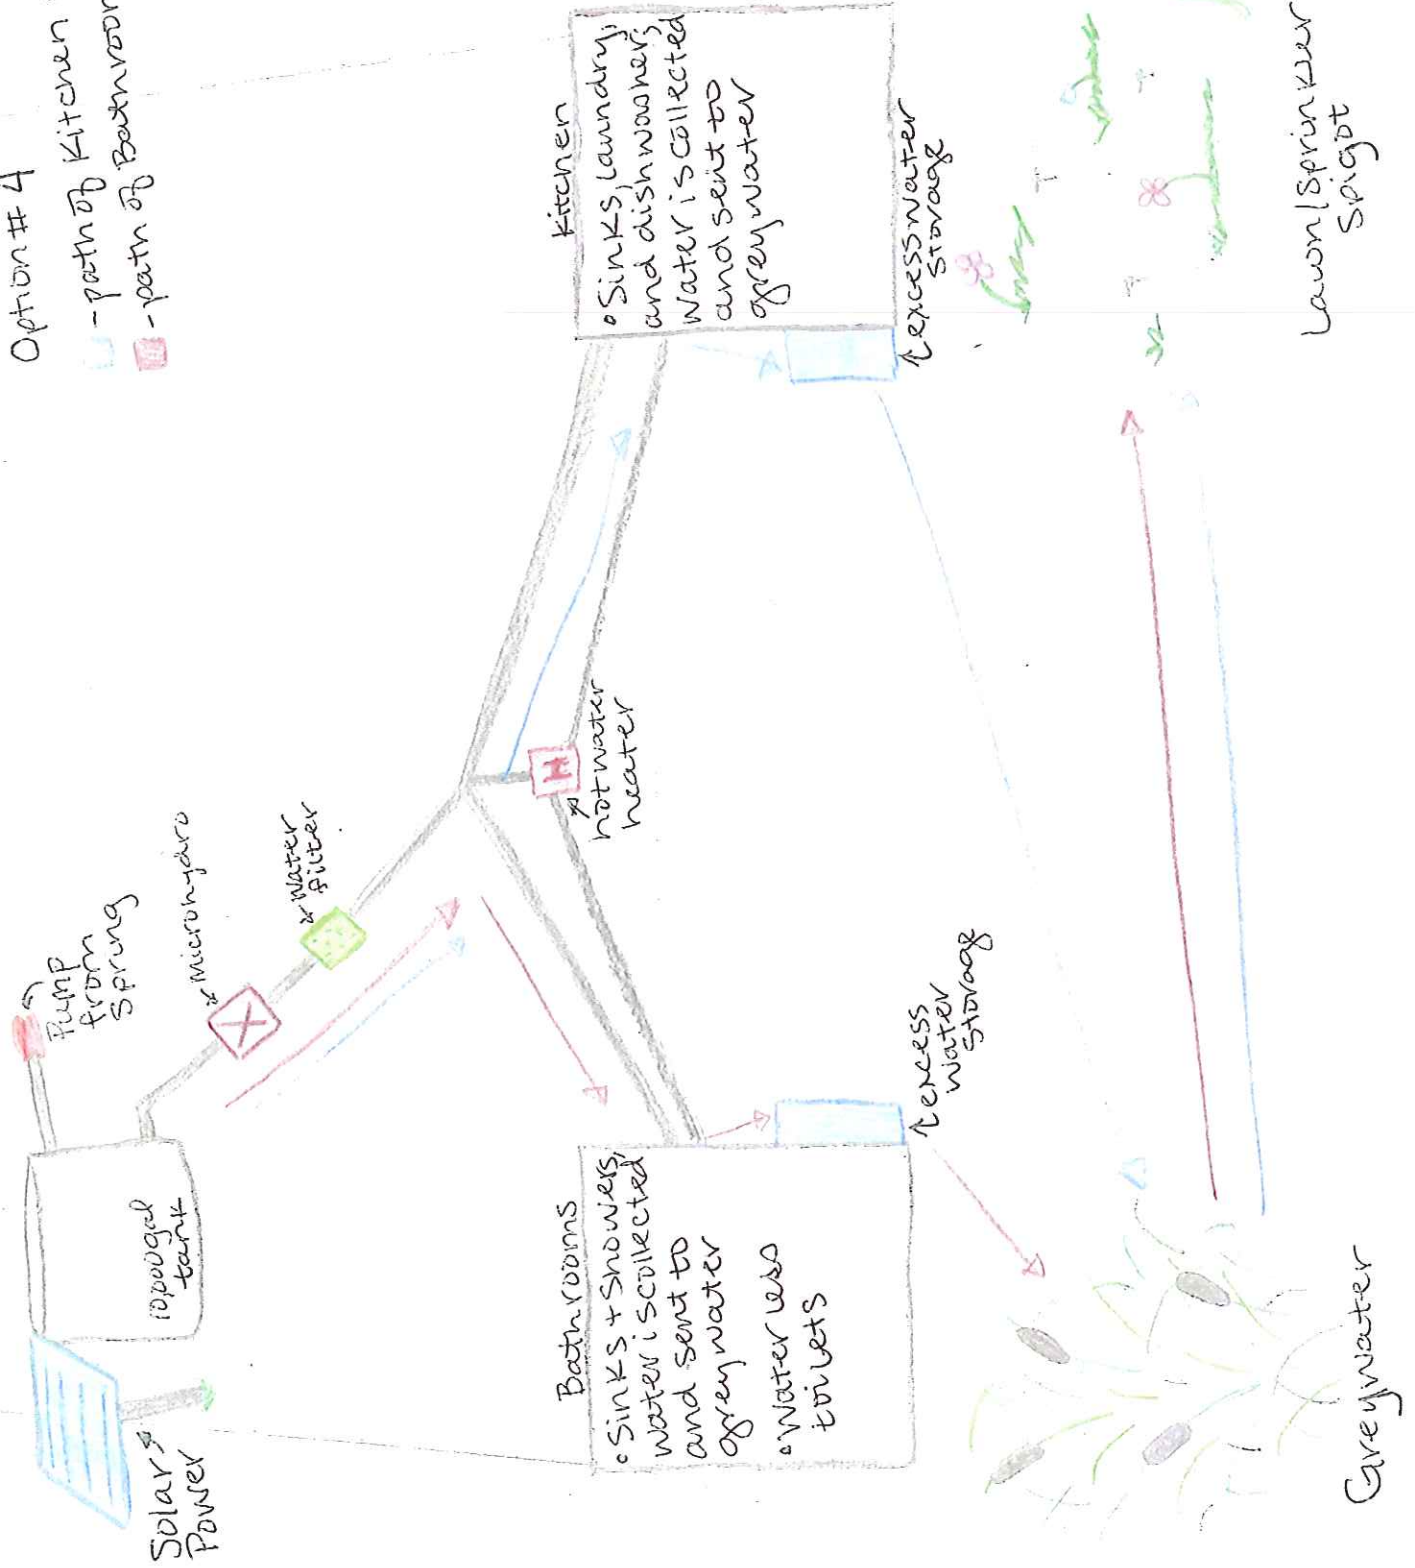 Option # 4
- path of Kitchen
- path of Bathroom
Pump
from
Spring
microhydro
water
filter
10,000gal
tank
Solar
Power
hot water
heater
Kitchen
• Sinks, laundry,
and dishwasher;
water is collected
and sent to
greywater
excess water
storage
Bathrooms
• Sinks + Showers,
water is collected
and sent to
greywater
• Waterless
toilets
excess
water
storage
Greywater
Lawn/Sprinkler
Spigot
X
H